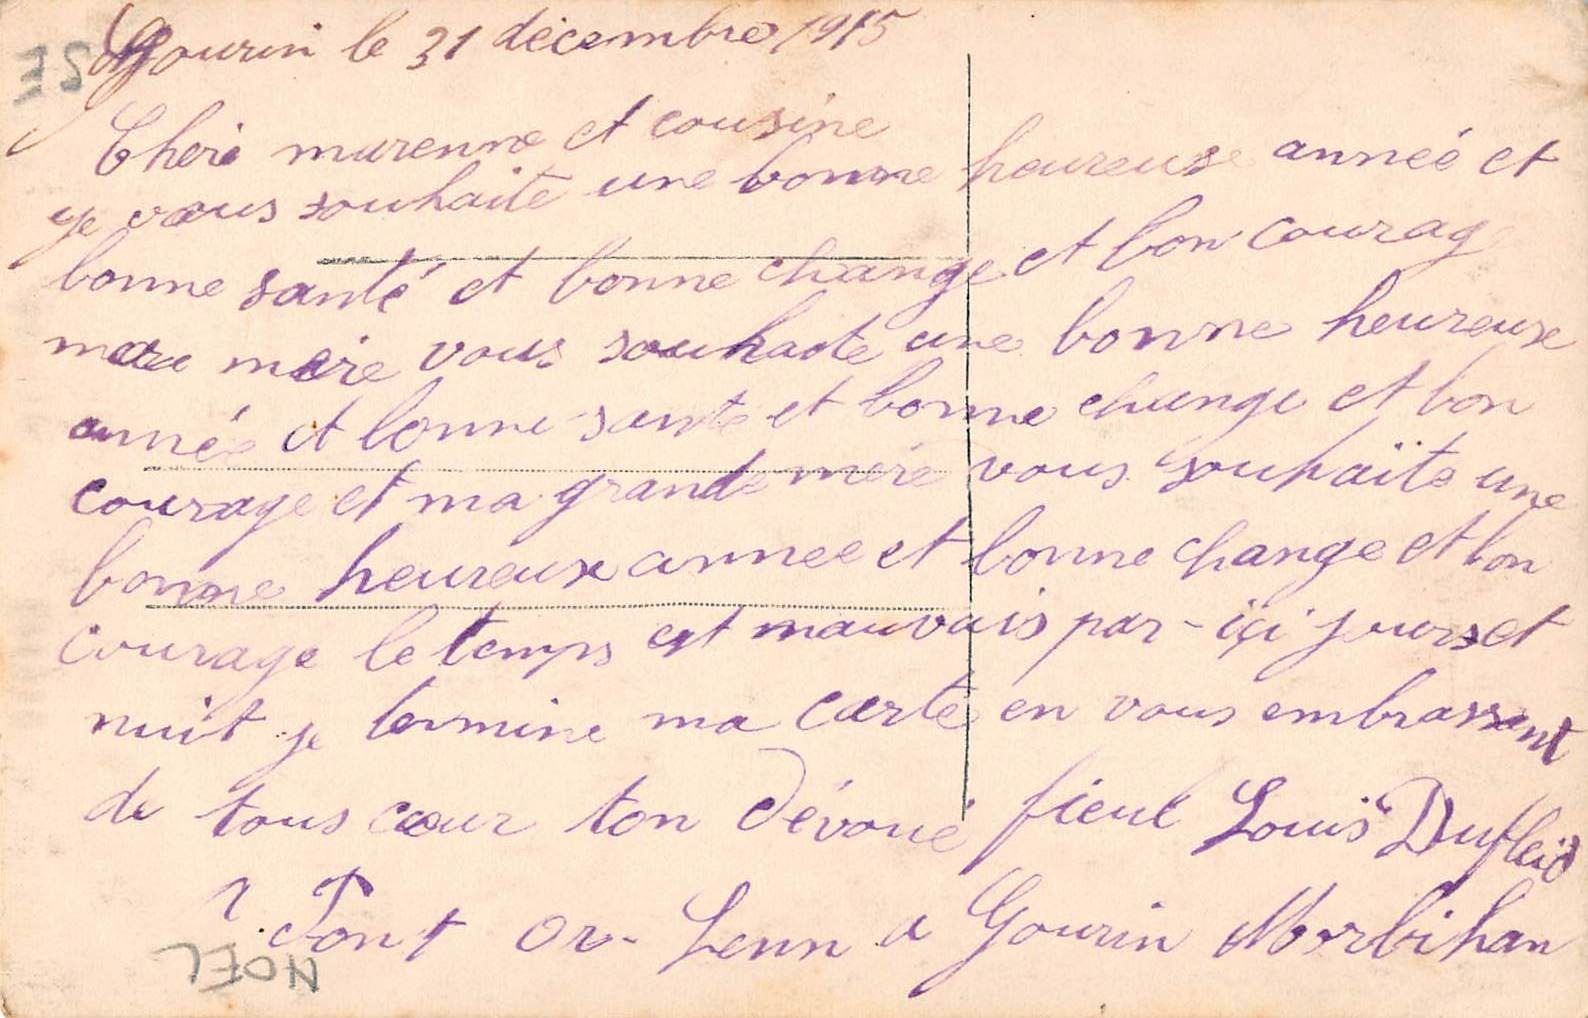 Gourin le 31 décembre 1915
Chère marenne et cousine
je vous souhaite une bonne heureuse année et
bonne santé et bonne change et bon courag
mere vous souhaite une bonne heureuse
année et bonne santé et bonne change et bon
courage et ma grande mère vous souhaite une
bonne heureuse annee et bonne change et bon
courage le temps est mauvais par-içi jours et
nuit je termine ma carte en vous embrassent
de tous cœur ton dévoué fieul Louis
Pont Or-Lenn a Gourin Morbihan
NOEL